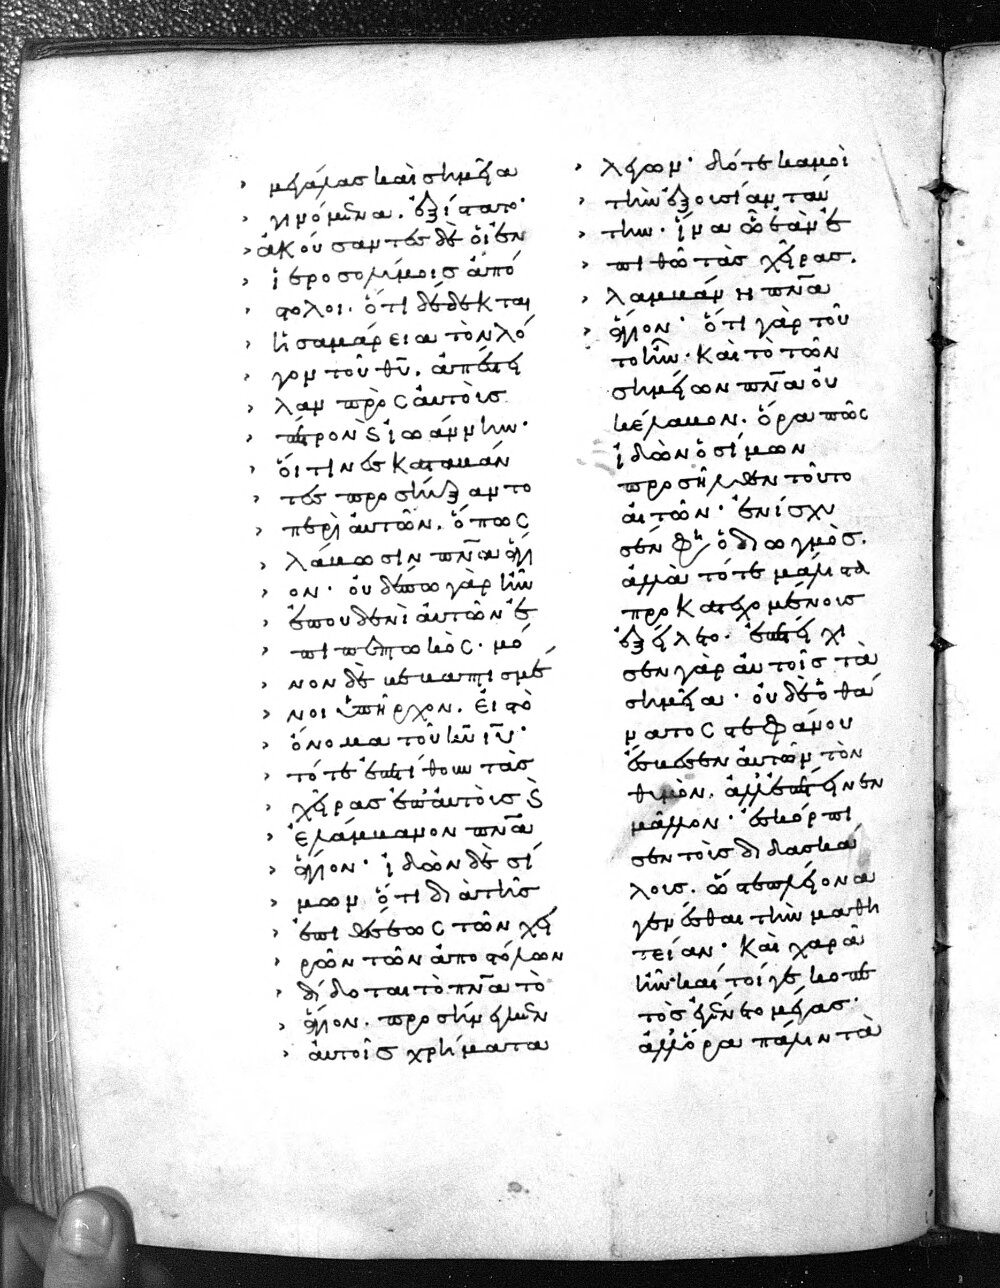 μεγάλας καὶ σημεῖα
γινόμενα. ἐξίστατο·
ἀκούσαντες δὲ οἱ ἐν
ἱεροσολύμοις ἀπό
στολοι. ὅτι δέδεκται
ἡ σαμάρεια τὸν λό
γον τοῦ θῦ. ἀπέστει
λαν πρὸς αὐτοὺς
πέτρον ϗ ἰωάννην·
οἵτινες καταβάν
τες προσηύξαντο
περὶ αὐτῶν. ὅπως
λάβωσιν πνα ἅγι
ον· οὐδέπω γὰρ ἦν
ἐπ' οὐδενὶ αὐτῶν ἐ
πιπεπτωκὸς· μό
νον δὲ βεβαπτισμέ
νοι ὑπῆρχον. εἰς τὸ
ὄνομα τοῦ κυ ιυ·
τότε ἐπετίθουν τὰς
χεῖρας ἐπ' αὐτοὺς ϗ
ἐλάμβανον πνα
ἅγιον· ἰδὼν δὲ σί
μων ὅτι διὰ τῆς
ἐπιθέσεως τῶν χει
ρῶν τῶν ἀποστόλων
δίδοται τὸ πνα τὸ
ἅγιον. προσήνεγκεν
αὐτοῖς χρήματα
λέγων· δότε κἀμοὶ
τὴν ἐξουσίαν ταύ
την· ἵνα ᾧ ἐὰν ἐ
πιθῶ τὰς χεῖρας.
λαμβάνη πνα
ἅγιον· ὅτι γὰρ τοῦ
το ἦν· καὶ τὸ τῶν
σημείων πνα οὐ
κ ἐλαβον. ὅρα πῶς
ἰδὼν ὁ σίμων
προσῆλθεν τοῦτο
αἰτῶν· ἐπίσχυ
σεν φη ὁ διωγμὸς.
ἀλλὰ τότε μάλιστα
προκατεχομένοις
ἐξέλυε. ἐπετείχι
σεν γὰρ αὐτοῖς τὰ
σημεῖα· οὐδὲ ὁ θά
νατος στεφάνου
ἔσβεσεν αὐτῶν τὸν
θυμὸν. ἀλλ' ἐπέτεινεν
μᾶλλον· ἐσκόρπι
σεν τοὺς διδασκά
λους. ὥστε πλείονα
γενέσθαι τὴν μαθη
τείαν· καὶ χαρὰ
ἦν· καί τοί γε κοπε
τὸς ἐγένετο μέγας·
ἀλλ' ὅρα πάλιν τὰ